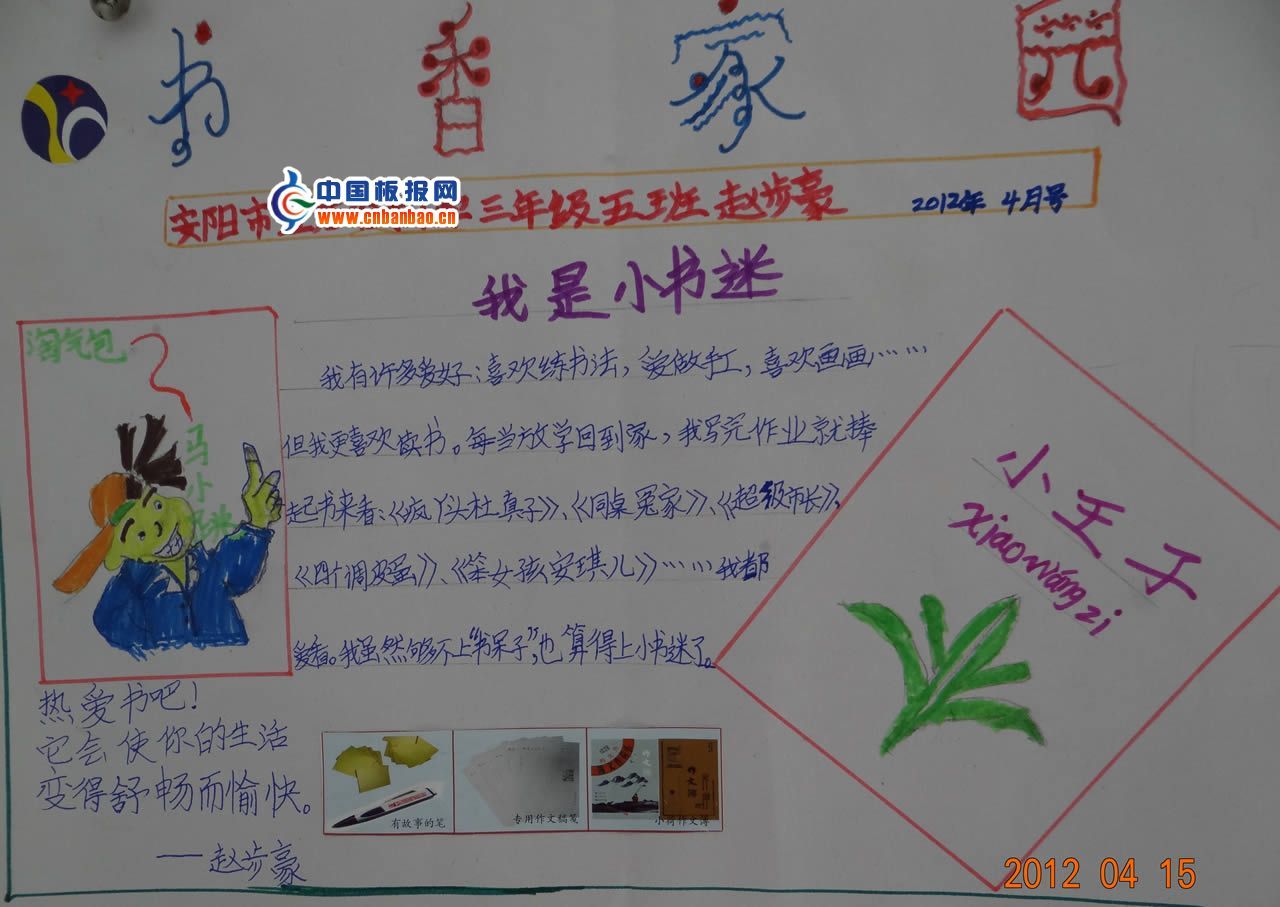 书香家园
安阳市
三年级五班 赵步豪 2012年 4月号
中国板报网
www.cnbanbao.cn
我是小书迷
我有许多爱好：喜欢练书法，爱做手工，喜欢画画……
但我更喜欢读书。每当放学回到家，我写完作业就捧
起书来看：《疯丫头杜真子》、《同桌冤家》、《超级市长》、
《四个调皮蛋》、《笨女孩安琪儿》……我都
爱看。我虽然够不上“书呆子”，也算得上小书迷了。
淘气包
马小跳
小王子
xiaowángzi
热爱书吧！
它会使你的生活
变得舒畅而愉快。
——赵步豪
有故事的笔
专用作文稿笺
作文簿
小荷作文簿
2012 04 15